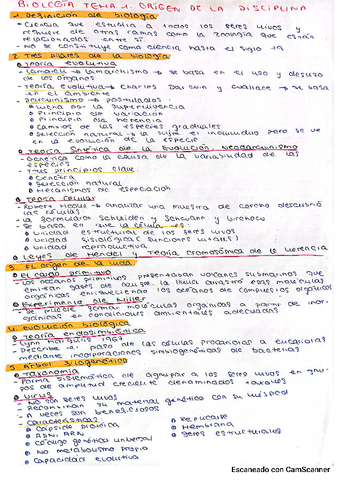 BIOLOGÍA TEMA 1. ORIGEN DE LA DISCIPLINA
1. Definición de biología
- Ciencia que estudia a todos los seres vivos y
resuelve de otras ramas como la zoología que están
relacionadas entre sí.
- No se constituye como ciencia hasta el siglo 19
2. Tres pilares de la biología
Teoría evolutiva
- Lamarck → Lamarckismo → se basa en el uso y desuso
de los órganos
- Teoría evolutiva → Charles Darwin y Wallace → se basa
en el ambiente
- Darwinismo → postulados:
Lucha por la supervivencia
Principio de variación
Principio de herencia
Cambios de las especies graduales
Selección natural → la sufre el individuo pero se ve
en la evolución de la especie
Teoría Sintética de la Evolución, Neodarwinismo
- Genética como la causa de la variabilidad de las
especies
- Tres principios clave:
Genética
Selección natural
Mecanismos de especiación
Teoría celular
- Robert Hooke → analizar una muestra de corcho descubrió
las células
- La formularon Schleiden y Schwann y Virchow
- Se basa en que la célula es:
Unidad estructural de los seres vivos
Unidad fisiológica (funciones vitales)
Unidad reproductiva
Leyes de Mendel y Teoría cromosómica de la herencia
3. El origen de la vida
El caldo primitivo
- Los océanos primitivos presentaban volcanes submarinos que
emitían gases de azufre. La lluvia arrastró esas moléculas
orgánicas enriqueciendo los océanos de compuestos orgánicos
Experimento de Miller
- Se puede formar moléculas orgánicas a partir de inor-
gánicas en condiciones ambientales adecuadas
4. Evolución biológica
Teoría endosimbiótica
- Lynn Margulis 1967
- Describe el paso de las células procariotas a eucariotas
mediante incorporaciones simbiogenéticas de bacterias
5. Árbol filogenético
Taxonomía
- Forma sistemática de agrupar a los seres vivos en gru-
pos de amplitud creciente denominados taxones
Virus
- No son seres vivos
- Recombinan su material genético con su huésped
- A veces son beneficiosos
- Características
Cápside proteica
ADN/ARN
Código genético universal
No metabolismo propio
Capacidad evolutiva
Membrana
Seres estructurales
Escaneado con CamScanner